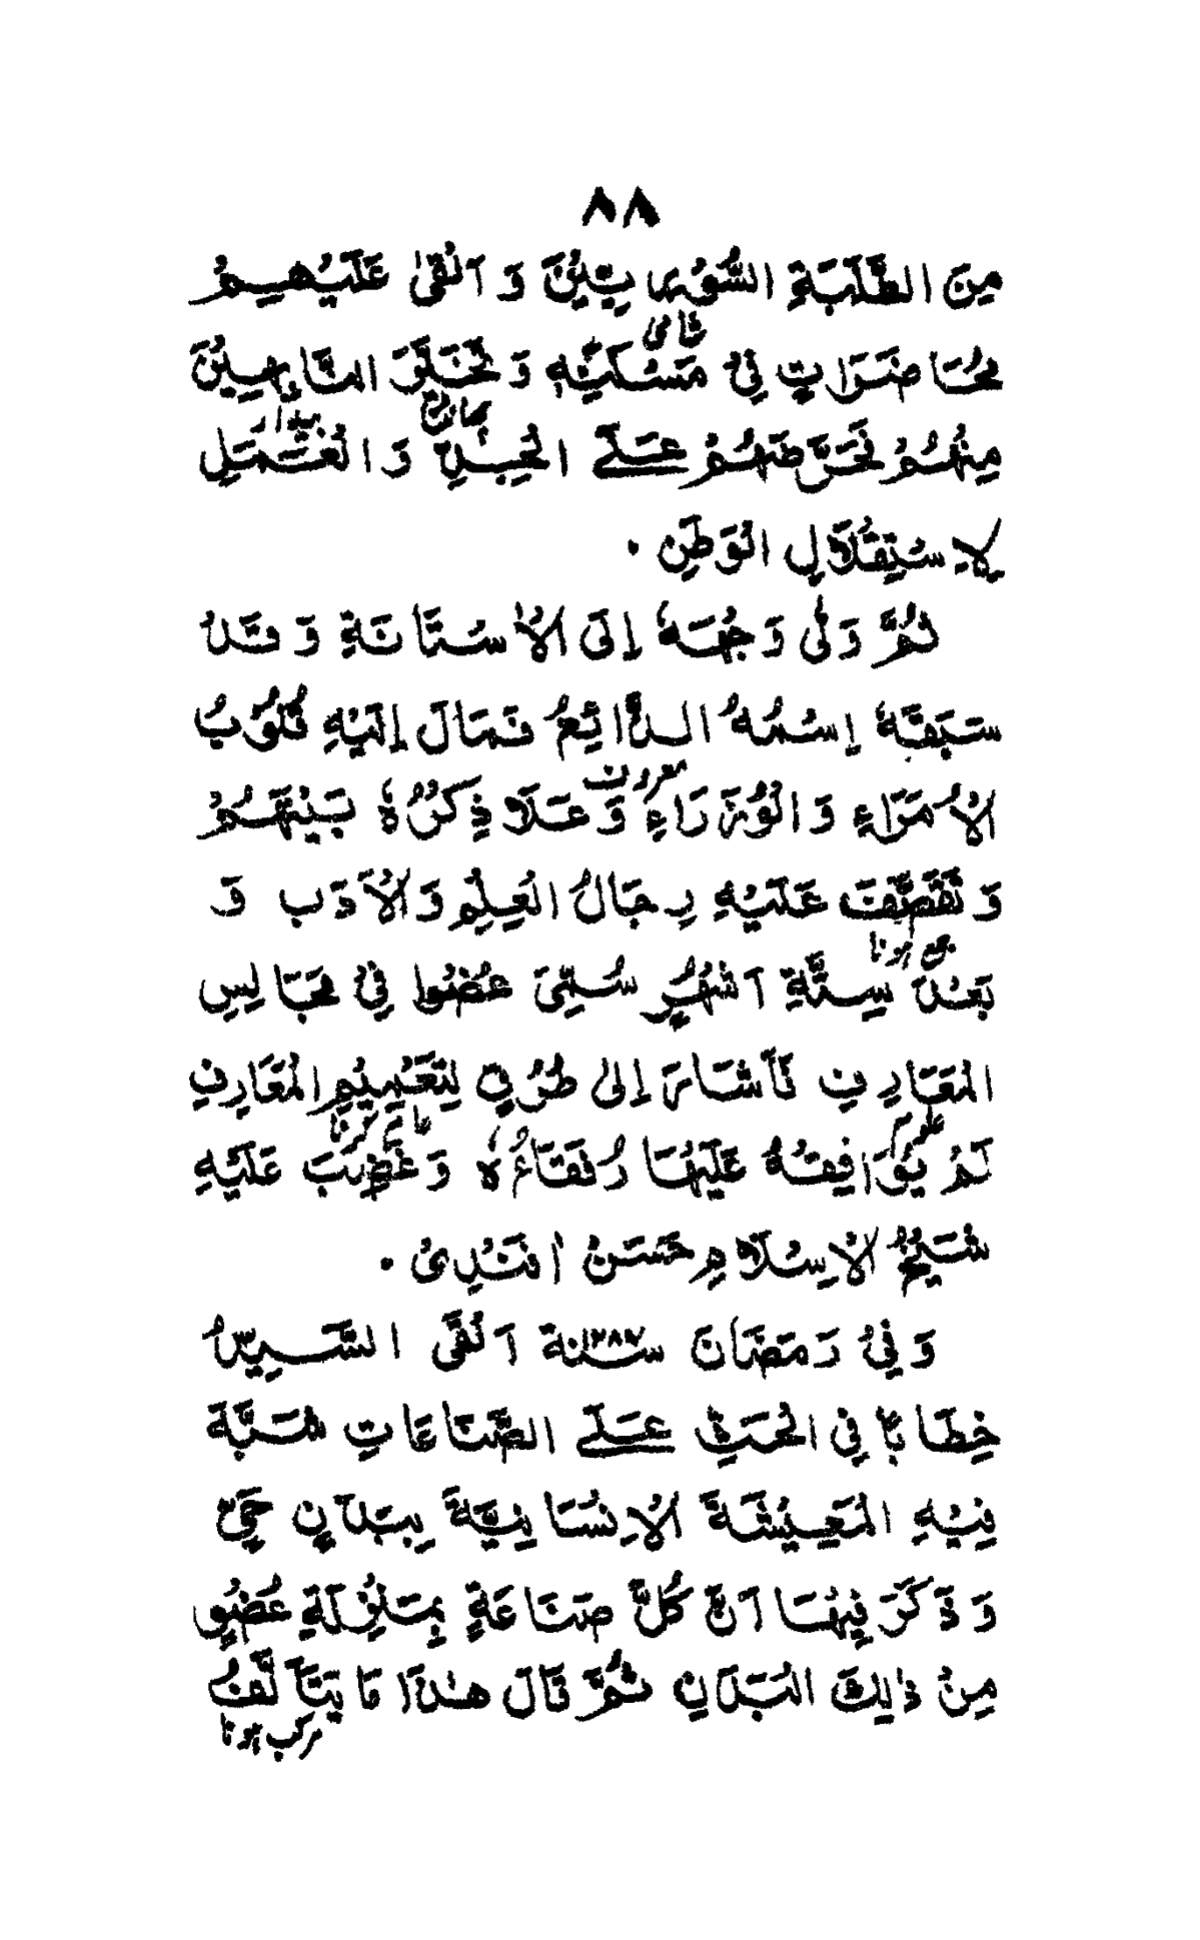 ٨٨
مِنَ الطَّلَبَةِ السُّوْرِيَا بِيِّيْنَ وَ اَلْقٰى عَلَيْهِمْ
شامی
مُحَاضَرَاتٍ فِيْ مَسْكَنِهٖ وَ تَخَلَّقَ النَّابِهِيْنَ
بهادر
مِنْهُمْ نَحَرَّضَهُمْ عَلَے الْجِدِّ وَ الْعَمَلِ
لِاسْتِقْلَالِ الْوَطَنِ ۰
ثُمَّ وَلّٰى وَجْهَهٗ إِلَى الْاُسْتَانَةِ وَقَدْ
سَبَقَهٗ إِسْمُهُ الذَّائِعُ فَمَالَ إِلَيْهِ قُلُوْبُ
معروف
الْاُمَرَاءِ وَالْوُزَرَاءِ وَعَلَا ذِكْرُهٗ بَيْنَهُمْ
وَ تَقَصَّفَتْ عَلَيْهِ رِجَالُ الْعِلْمِ وَالْاَدَبِ وَ
جمع ہونا
بَعْدَ سِتَّةِ اَشْهُرٍ سُمِّىَ عُضْوا فِيْ مَجَالِسِ
الْمَعَارِفِ فَاَشَارَ إِلىٰ طُرُقٍ لِتَعْمِيْمِ الْمَعَارِفِ
علوم عام کرنا
لَمْ يُوَافِقْهُ عَلَيْهَا رُفَقَاءُهٗ وَغَضِبَ عَلَيْهِ
شَيْخُ الْاِسْلَامِ حَسَنْ اَفَنْدِىْ ۰
وَ فِيْ رَمَضَانَ سنة ۱۲۸۷ اَلْقَى السَّيِّدُ
خِطَابًا فِي الْحَثِّ عَلَے الصَّنَاعَاتِ شَبَّهَ
فِيْهِ الْمَعِيْشَةَ الْاِنْسَانِيَّةَ بِبَدَنٍ حَىٍّ
وَ ذَكَرَ فِيْهَا اَنَّ كُلَّ صَنَاعَةٍ بِمَنْزِلَةِ عُضْوٍ
مِنْ ذٰلِكَ الْبَدَنِ ثُمَّ قَالَ هٰذَا مَا يَتَاَلَّفُ
مرکب ہونا